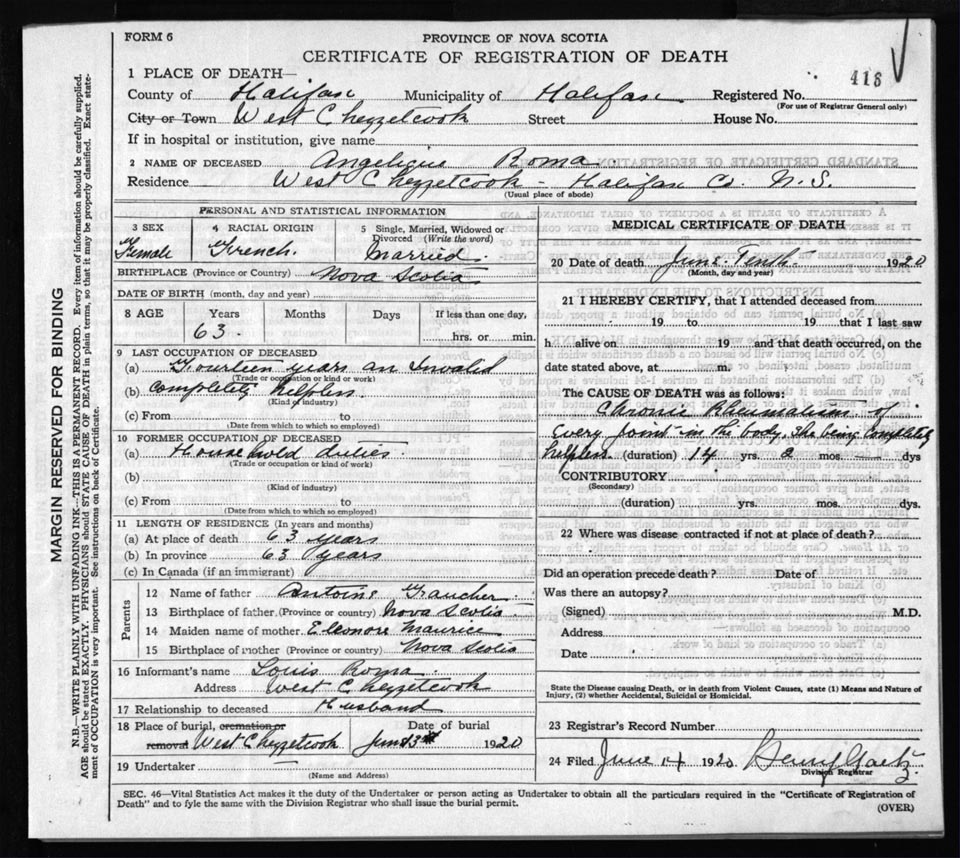 FORM 6
PROVINCE OF NOVA SCOTIA
CERTIFICATE OF REGISTRATION OF DEATH
418
1 PLACE OF DEATH—
County of Halifax Municipality of Halifax Registered No.
(For use of Registrar General only)
City or Town West Chezzetcook Street House No.
If in hospital or institution, give name
2 NAME OF DECEASED Angelique Roma
Residence West Chezzetcook - Halifax Co. N.S.
(Usual place of abode)
PERSONAL AND STATISTICAL INFORMATION
3 SEX 4 RACIAL ORIGIN 5 Single, Married, Widowed or Divorced (Write the word)
Female French. Married.
BIRTHPLACE (Province or Country) Nova Scotia
DATE OF BIRTH (month, day and year)
8 AGE Years Months Days If less than one day,
63 hrs. or min.
9 LAST OCCUPATION OF DECEASED
(a) Fourteen years an Invalid
(Trade or occupation or kind or work)
(b) completely helpless.
(Kind of industry)
(c) From to
(Date from which to which so employed)
10 FORMER OCCUPATION OF DECEASED
(a) Household duties
(Trade or occupation or kind of work)
(b)
(Kind of industry)
(c) From to
(Date from which to which so employed)
11 LENGTH OF RESIDENCE (In years and months)
(a) At place of death 63 years
(b) In province 63 years
(c) In Canada (if an immigrant)
Parents
12 Name of father Antoine Graucher
13 Birthplace of father (Province or country) Nova Scotia
14 Maiden name of mother Eleonore Mauries
15 Birthplace of mother (Province or country) Nova Scotia
16 Informant's name Louis Roma
Address West Chezzetcook
17 Relationship to deceased Husband
18 Place of burial, cremation or removal West Chezzetcook Date of burial June 13th 1920
19 Undertaker
(Name and Address)
MEDICAL CERTIFICATE OF DEATH
20 Date of death June Tenth 1920
(Month, day and year)
21 I HEREBY CERTIFY, that I attended deceased from
19 to 19 that I last saw
h alive on 19 and that death occurred, on the
date stated above, at m.
The CAUSE OF DEATH was as follows:
Chronic Rheumatism of
Every joint in the body, she being completely
helpless. (duration) 14 yrs. 2 mos. dys
CONTRIBUTORY
(Secondary)
(duration) yrs. mos. dys.
22 Where was disease contracted if not at place of death?
Did an operation precede death? Date of
Was there an autopsy?
(Signed) M.D.
Address
Date
State the Disease causing Death, or in death from Violent Causes, state (1) Means and Nature of
Injury, (2) whether Accidental, Suicidal or Homicidal.
23 Registrar's Record Number
24 Filed June 14 1920 Henry Gaetz.
Division Registrar
SEC. 46—Vital Statistics Act makes it the duty of the Undertaker or person acting as Undertaker to obtain all the particulars required in the "Certificate of Registration of
Death" and to fyle the same with the Division Registrar who shall issue the burial permit.
(OVER)
MARGIN RESERVED FOR BINDING
N.B.—WRITE PLAINLY WITH UNFADING INK—THIS IS A PERMANENT RECORD. Every item of information should be carefully supplied.
AGE should be stated EXACTLY. PHYSICIANS should STATE CAUSE OF DEATH in plain terms, so that it may be properly classified. Exact state-
ment of OCCUPATION is very important. See instructions on back of Certificate.